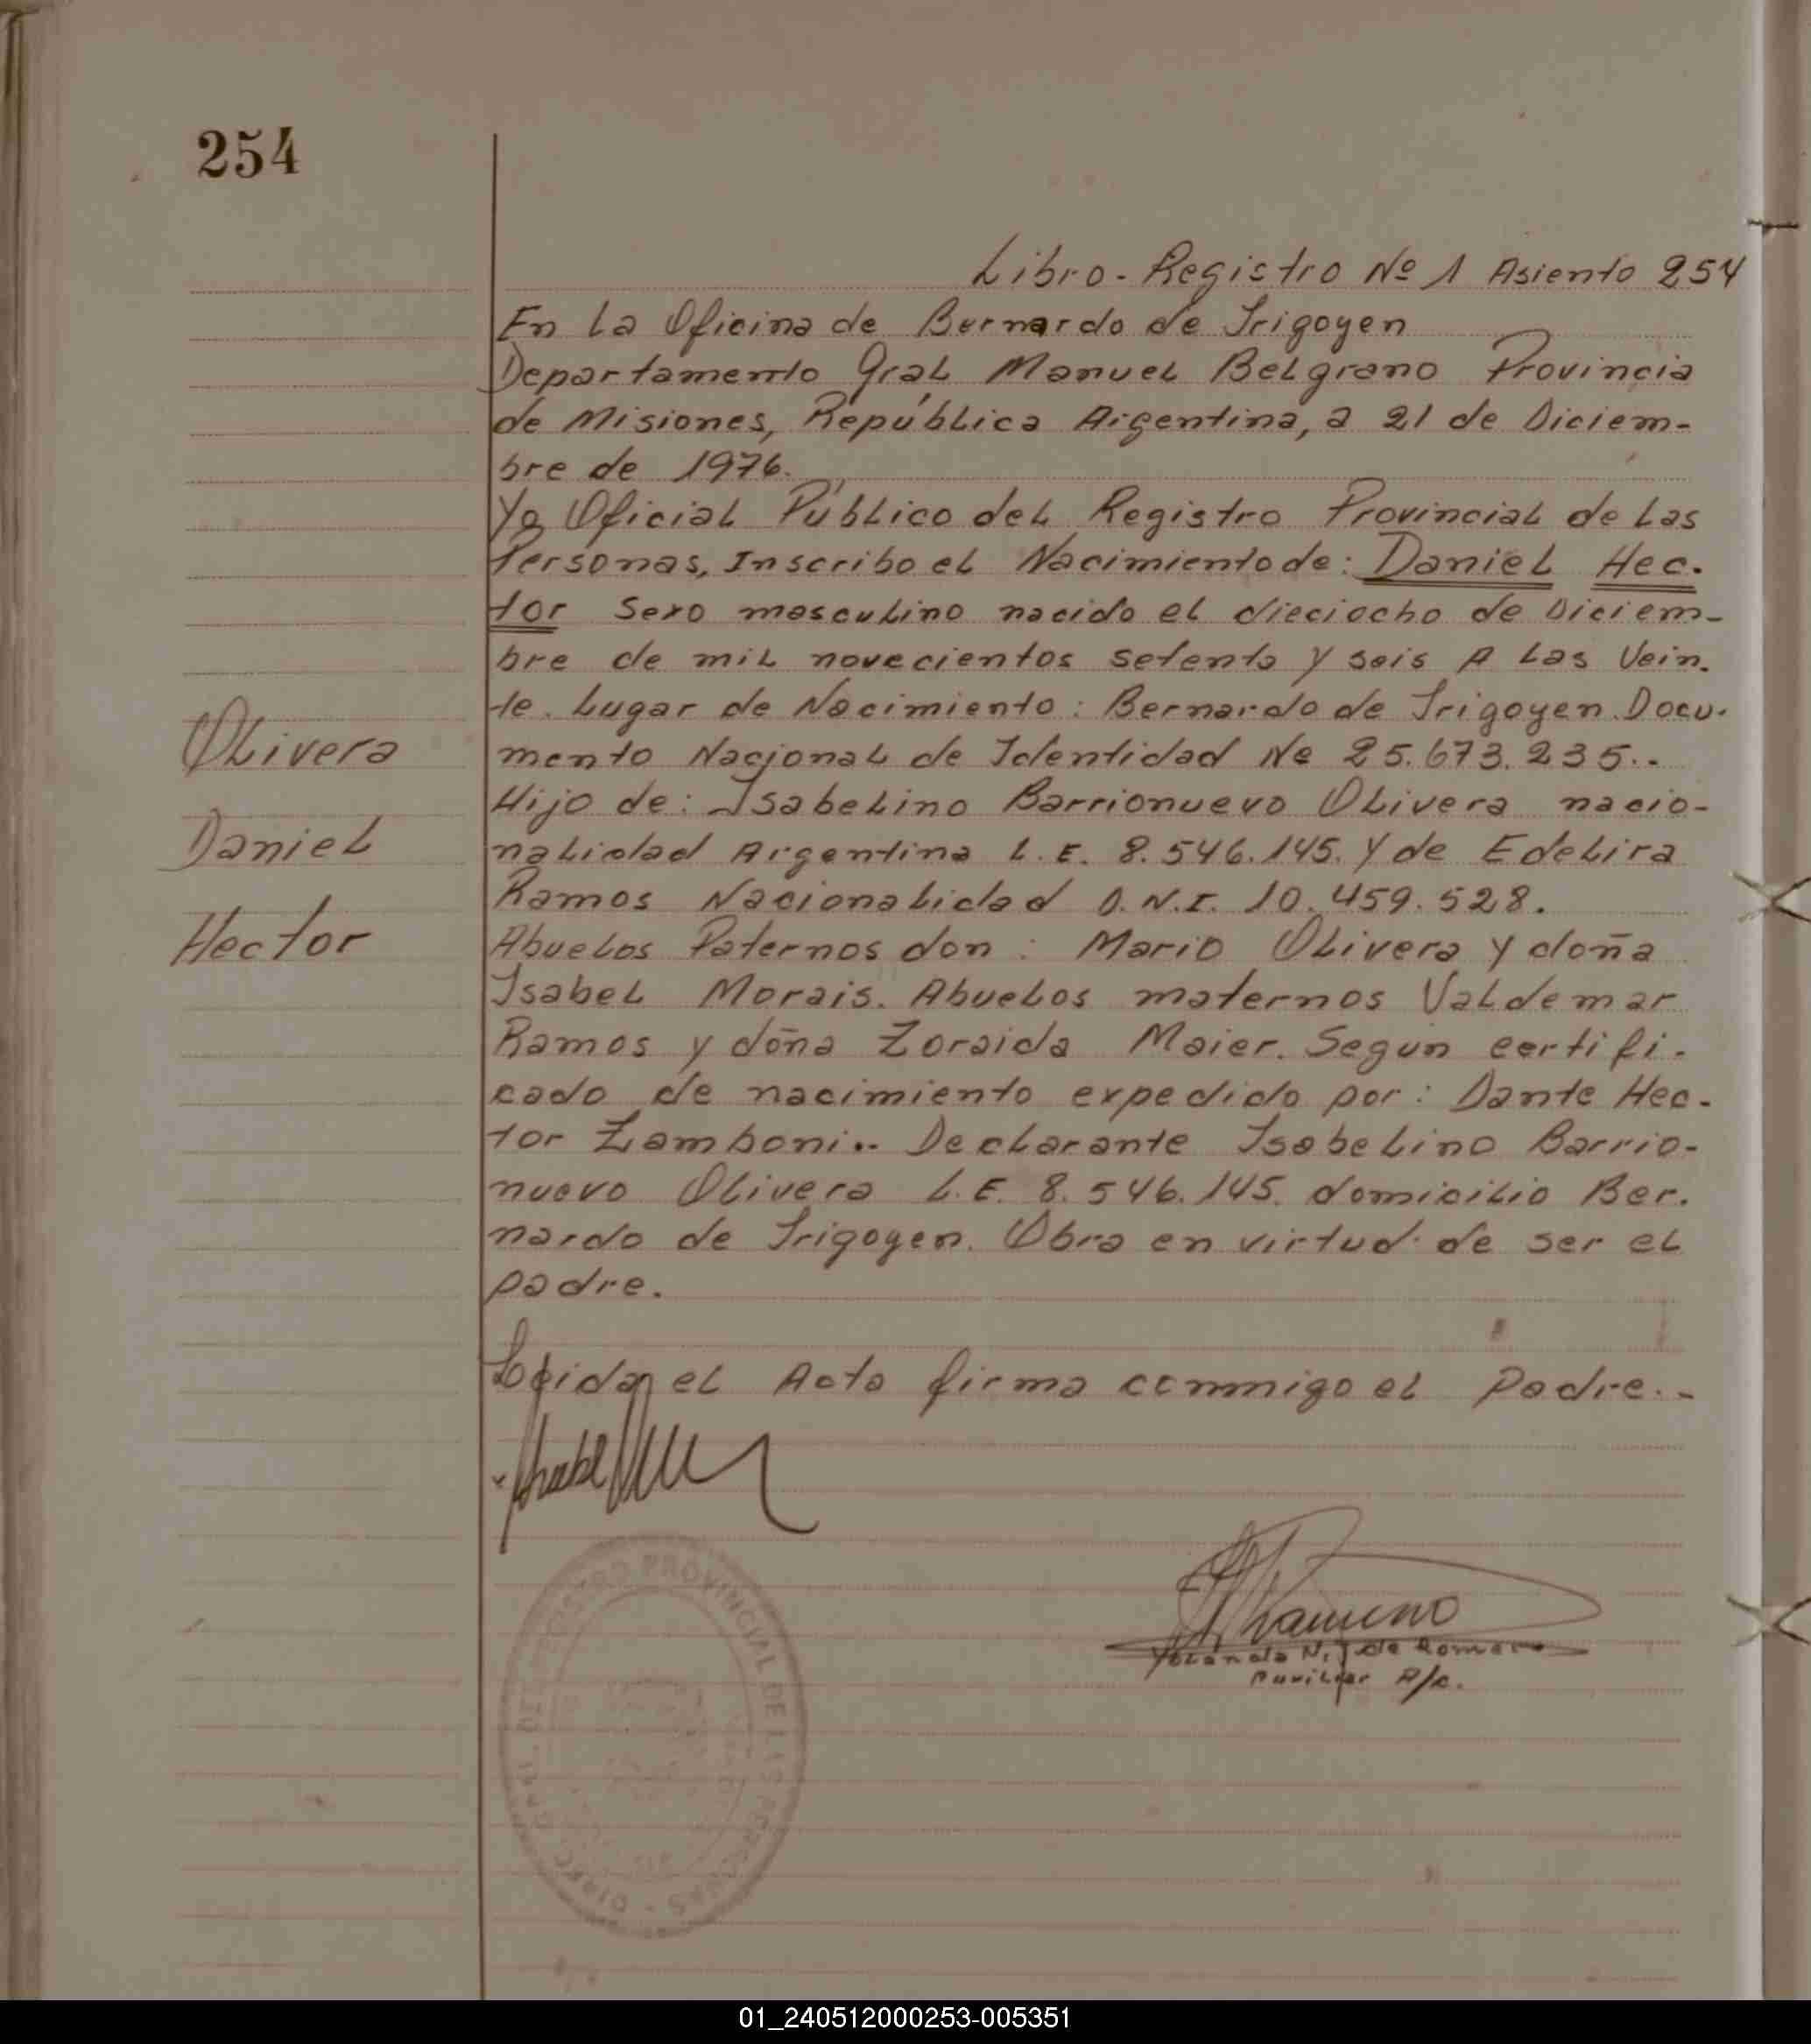 254
Libro-Registro Nº 1 Asiento 254
En la Oficina de Bernardo de Irigoyen
Departamento Gral Manuel Belgrano Provincia
de Misiones, República Argentina, a 21 de Diciem-
bre de 1976.
Yo Oficial Público del Registro Provincial de las
Personas, Inscribo el Nacimiento de: Daniel Hec.
tor Sexo masculino nacido el dieciocho de Diciem-
bre de mil novecientos setenta y seis A las Vein.
te. Lugar de Nacimiento: Bernardo de Irigoyen. Docu.
mento Nacional de Identidad Nº 25.673.235..
Hijo de: Isabelino Barrionuevo Olivera nacio-
nalidad Argentina L.E. 8.546.145. y de Edelira
Ramos Nacionalidad D.N.I. 10.459.528.
Abuelos Paternos don: Mario Olivera y doña
Isabel Morais. Abuelos maternos Valdemar
Ramos y doña Zoraida Maier. Segun certifi-
cado de nacimiento expedido por: Dante Hec-
tor Zamboni.. Declarante Isabelino Barrio-
nuevo Olivera L.E. 8.546.145. domicilio Ber.
nardo de Irigoyen. Obra en virtud de ser el
padre.
Leida el Acta firma conmigo el Padre.-
Olivera
Daniel
Hector
Yolanda N. J de Romero
Auxiliar A/c.
REGISTRO PROVINCIAL DE LAS PERSONAS
01_240512000253-005351